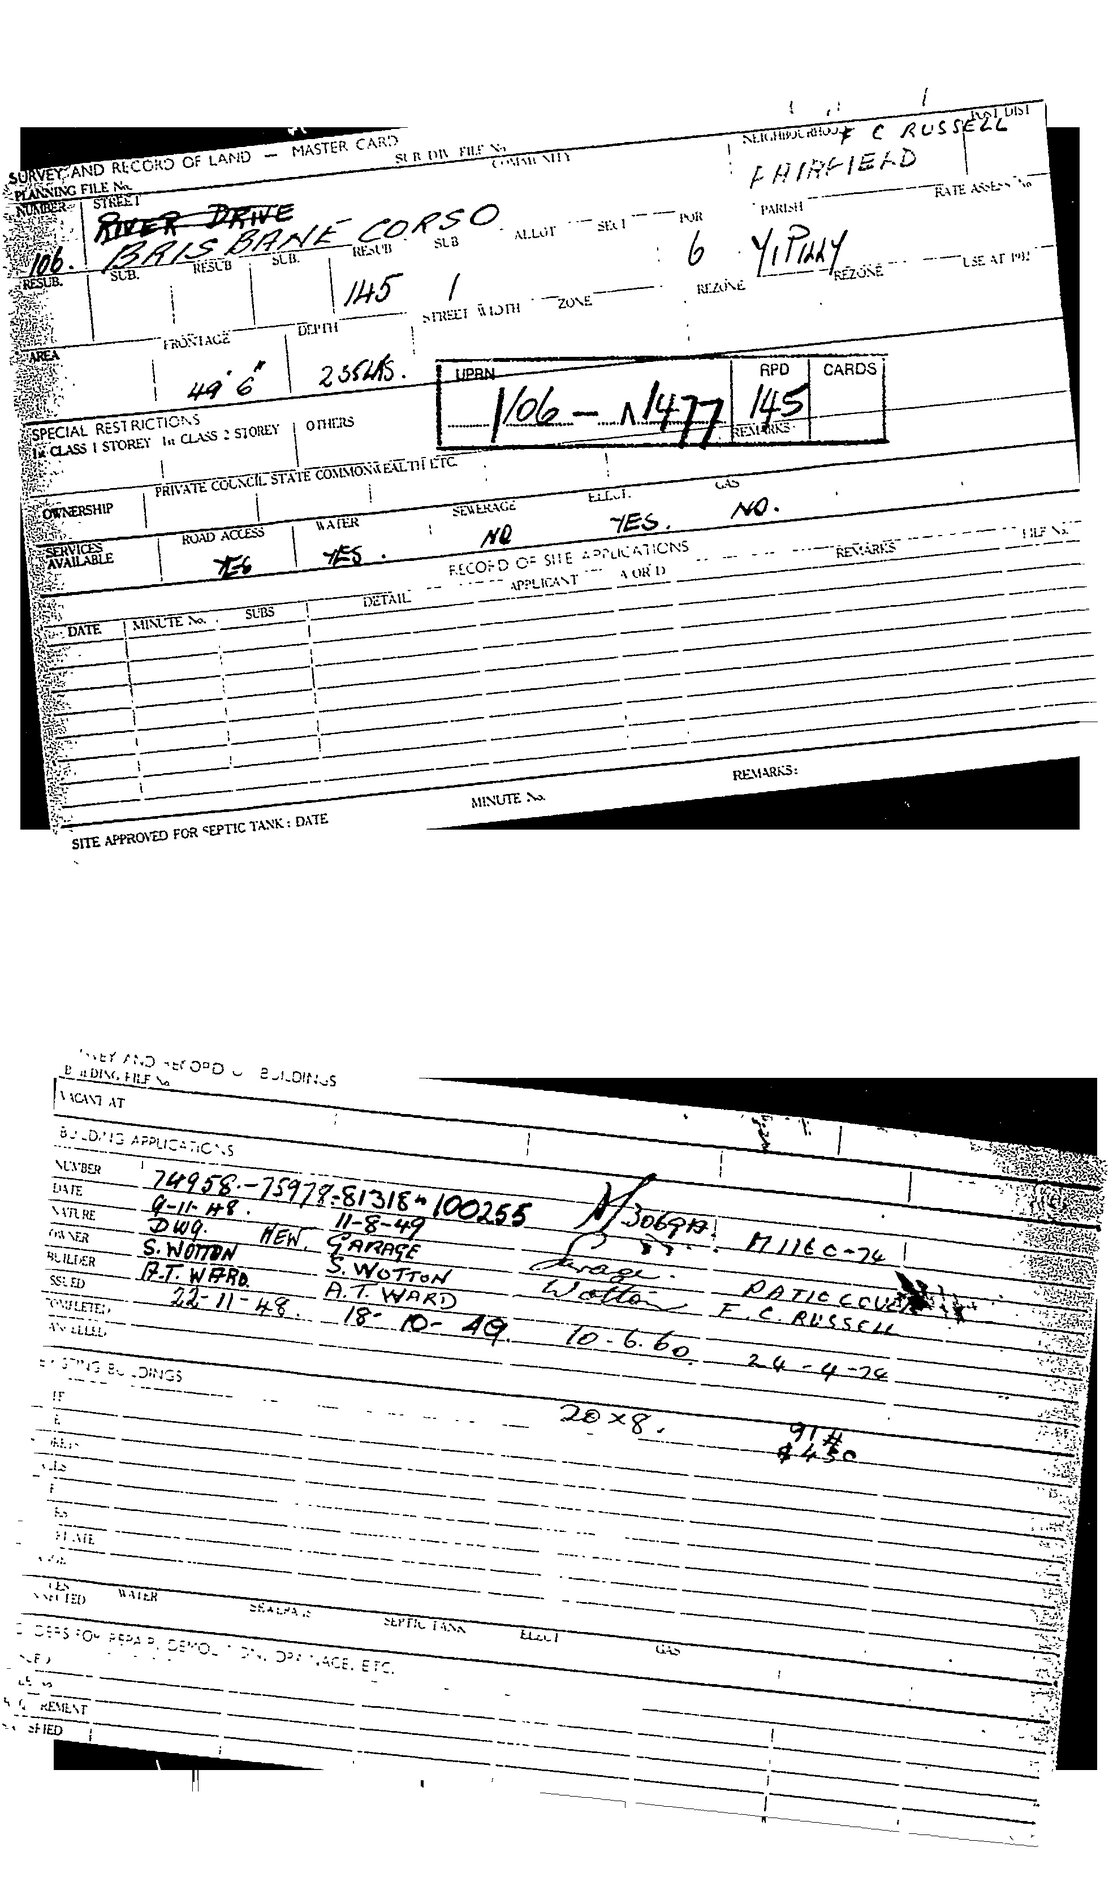 SURVEY AND RECORD OF LAND — MASTER CARD
PLANNING FILE No. SUB DIV. FILE No. COMMUNITY NEIGHBOURHOOD POST DIST
F C RUSSELL
FAIRFIELD
NUMBER STREET
RIVER DRIVE
106. BRISBANE CORSO
RESUB. SUB. RESUB SUB. RESUB SUB ALLOT SECT POR PARISH RATE ASSESS No
145 1 6 YIPILLY
AREA FRONTAGE DEPTH STREET WIDTH ZONE REZONE REZONE USE AT 19
49' 6" 235LKS.
UPRN RPD CARDS
106 — 1477 145
SPECIAL RESTRICTIONS
1st CLASS 1 STOREY 1st CLASS 2 STOREY OTHERS REMARKS
OWNERSHIP PRIVATE COUNCIL STATE COMMONWEALTH ETC.
SERVICES AVAILABLE ROAD ACCESS WATER SEWERAGE ELECT. GAS
YES YES. NO YES. NO.
RECORD OF SITE APPLICATIONS
DATE MINUTE No. SUBS DETAIL APPLICANT A OR D REMARKS FILE No.
SITE APPROVED FOR SEPTIC TANK: DATE MINUTE No. REMARKS:
SURVEY AND RECORD OF BUILDINGS
BUILDING FILE No
VACANT AT
BUILDING APPLICATIONS
NUMBER 74958.-75978-81318-100255 3069A
DATE 9-11-48. 11-8-49
NATURE DWG. NEW. GARAGE Garage. PATIO COVER
OWNER S. WOTTON S. WOTTON Wotton F. C. RUSSELL
BUILDER A.T. WARD. A.T. WARD
ISSUED 22-11-48. 18-10-49. 10-6.60. 24-4-74
COMPLETED
CANCELLED
EXISTING BUILDINGS
20 x 8. 91
$450
WATER SEWERAGE SEPTIC TANK ELECT GAS
ORDERS FOR REPAIR, DEMOLITION, DRAINAGE, ETC.
REQUIREMENT
SATISFIED